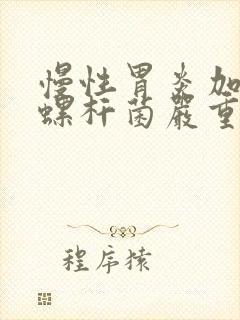 慢性胃炎加
螺杆菌嚴重
程序猿